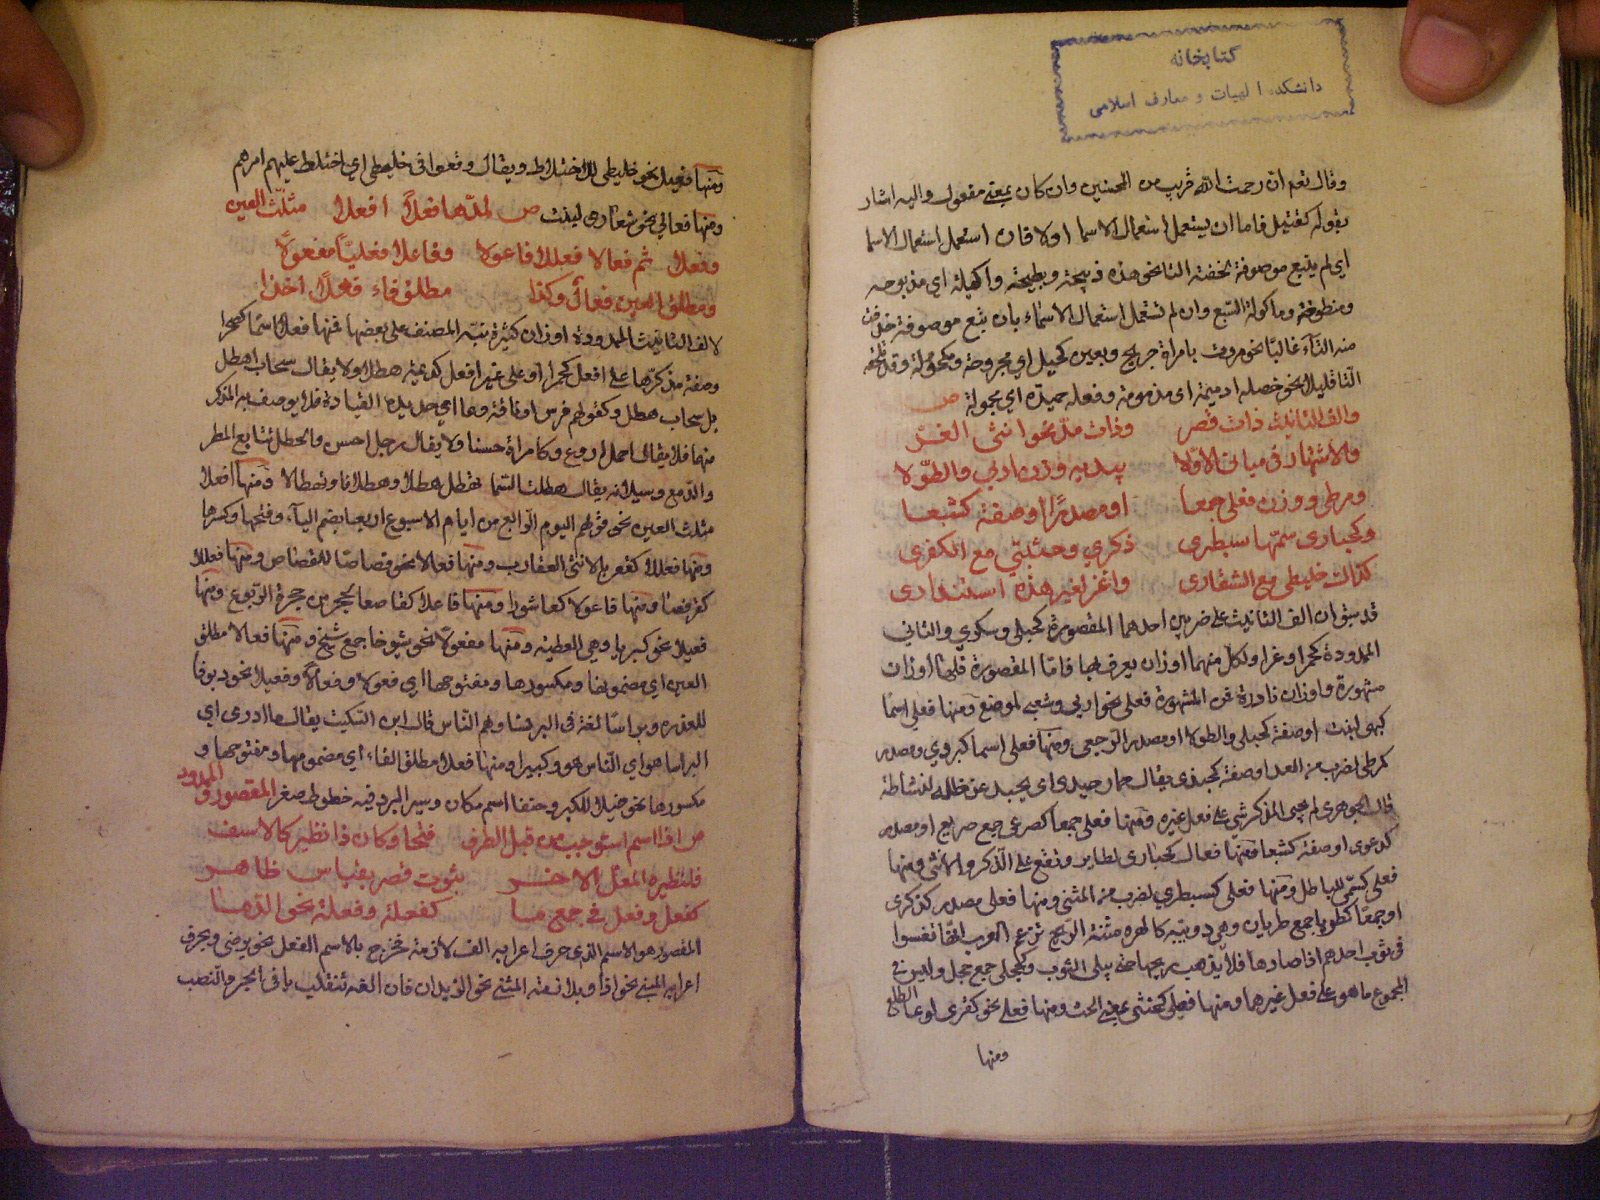 كتابخانه
دانشكده الهيات و معارف اسلامى
وقال تعم ان رحمت الله قريب من المحسنين وان كان بمعنى مفعول واليه اشار
بقوله كقتيل فاما ان يستعمل استعمال الاسما اولا فان استعمل استعمال الاسما
اى لم يتبع موصوفه لحقته التا نحو هذه ذبيحة ونطيحة واكيلة اى مذبوحه
ومنطوحة وماكولة السبع وان لم تستعمل استعمال الاسماء بان يتبع موصوفه حذفت
منه التآء غالبًا نحو مررت بامراة جريح وبعين كحيل اى مجروحة ومكحولة وقد تلحقه
التا قليلا نحو خصله ذميمة اى مذمومة وفعله حميدة اى محمولة ص
والف التانيث ذات قصر وذات مدّ نحو انثى الغرّ
والاشتهار فى مبانى الاولا يبديه وزن اربى والطّولا
ومرطى ووزن فعلى جمعا او مصدرًا او صفة كشبعا
وكحبارى سمّهى سبطرى ذكرى وحثيثى مع الكفرى
كذاك خليطى مع الشقارى واعز لغير هذه استندارى
قد سبق ان الف التانيث على ضربين احدهما المقصورة كحبلى وسكرى والثانى
الممدودة كحمرا وغرا ولكل منهما اوزان يعرف بها فاما المقصورة فلها اوزان
مشهورة واوزان نادرة فمن المشهورة فعلى نحو اربى وشعبى لموضع ومنها فعلى اسما
كبهمى لنبت او صفة كحبلى والطولا او مصدر الرجعى ومنها فعلى اسما كبردى ومصدر
كمرطى لضرب من العدا وصفة كحيدى يقال حمار حيدى اى يحيد عن ظله لنشاطه
قال الجوهرى لم يجى المذكر شى على فعلى غيره ومنها فعلى جمعا كصرعى جمع صريع او مصدر
كدعوى او صفة كشبعا ومنها فعالى كحبارى لطاير وتقع على الذكر والانثى ومنها
فعلى كسمّهى للباطل ومنها فعلى كسبطرى لضرب من المشى ومنها فعلى مصدر كذكرى
او جمعا كظربى جمع ظربان وهى دويبّة كالهره منتنة الريح تزعم العرب انها تفسوا
فى ثوب احدهم اذا صادها فلا يذهب ريحها حتى يبلى الثوب وكحجلى جمع حجل وليس فى
الجموع ما هو على فعلى غيرهما ومنها فعيلى كحثيثى بمعنى الحث ومنها فعلى نحو كفرى لوعا الطلع
ومنها
ومنها فعيلى نحو خليطى للاختلاط ويقال وقعوا فى خليطى اى اختلط عليهم امرهم
ومنها فعالى نحو شقارى لنبت ص لمدّها فعلاءُ افعلاء مثلّث العين
وفعللا ثم فعالا فعللا فاعولا وفاعلا فعليّا مفعولًا
ومطلق العين فعالى وكذا مطلق فاء فعلاءُ اخذا
لالف التانيث الممدودة اوزان كثيرة نبّه المصنف على بعضها فمنها فعلا اسمًا كصحرا
وصفة مذكرها على افعل كحمرا او على غير افعل كديمة هطلا ولا يقال سحاب اهطل
بل سحاب هطل وكقولهم فرس او ناقة روعا اى حديدة القيادة فلا يوصف به المذكر
منهما فلا يقال جمل اروع وكامراة حسنا ولا يقال رجل احسن والهطل تتابع المطر
والدمع وسيلانه يقال هطلت السما تهطل هطلا وهطلانا وتهطالا ومنها افعلا
مثلث العين نحو قولهم اليوم الرابع من ايام الاسبوع اربعا بضم البآء وفتحها وكسرها
ومنها فعللا كعقربا لانثى العقارب ومنها فعالا نحو قصاصا للقصاص ومنها فعللا
كقرفصا ومنها فاعولا كعاشورا ومنها فاعلا كقاصعا لحجر من حجرة اليربوع ومنها
فعليا نحو كبريا وهى العظمة ومنها مفعولا نحو مشيوخا جمع شيخ ومنها فعالا مطلق
العين اى مضمومها ومكسورها ومفتوحها اى فعولا وفعالا وفعيلا نحو دبوقا
للعذره وبراسا لغة فى البرنسا وهم النّاس قال ابن السّكيت يقال ما ادرى اى
البراسا هو اى النّاس هو وكبيرا ومنها فعلا مطلق الفاء اى مضمومها ومفتوحها و
مكسورها نحو خيلا للكبر وجنفا اسم مكان وسيرا لبرد فيه خطوط صفر المقصور والممدود
ص اذا اسم استوجب من قبل الطرف فتحا وكان ذا نظير كالاسف
فلنظيره المعلّ الاخر ثبوت قصر بقياس ظاهر
كفعل وفعل فى جمع ما كفعلة وفعلة نحو الدّما
المقصور هو الاسم الذى حرف اعرابه الف لازمة فخرج بالاسم الفعل نحو يرضى وبحرف
اعرابه المبنى نحو اذا وبلازمة المثنى نحو الزيدان فان الفه تنقلب يا فى الجر والنصب